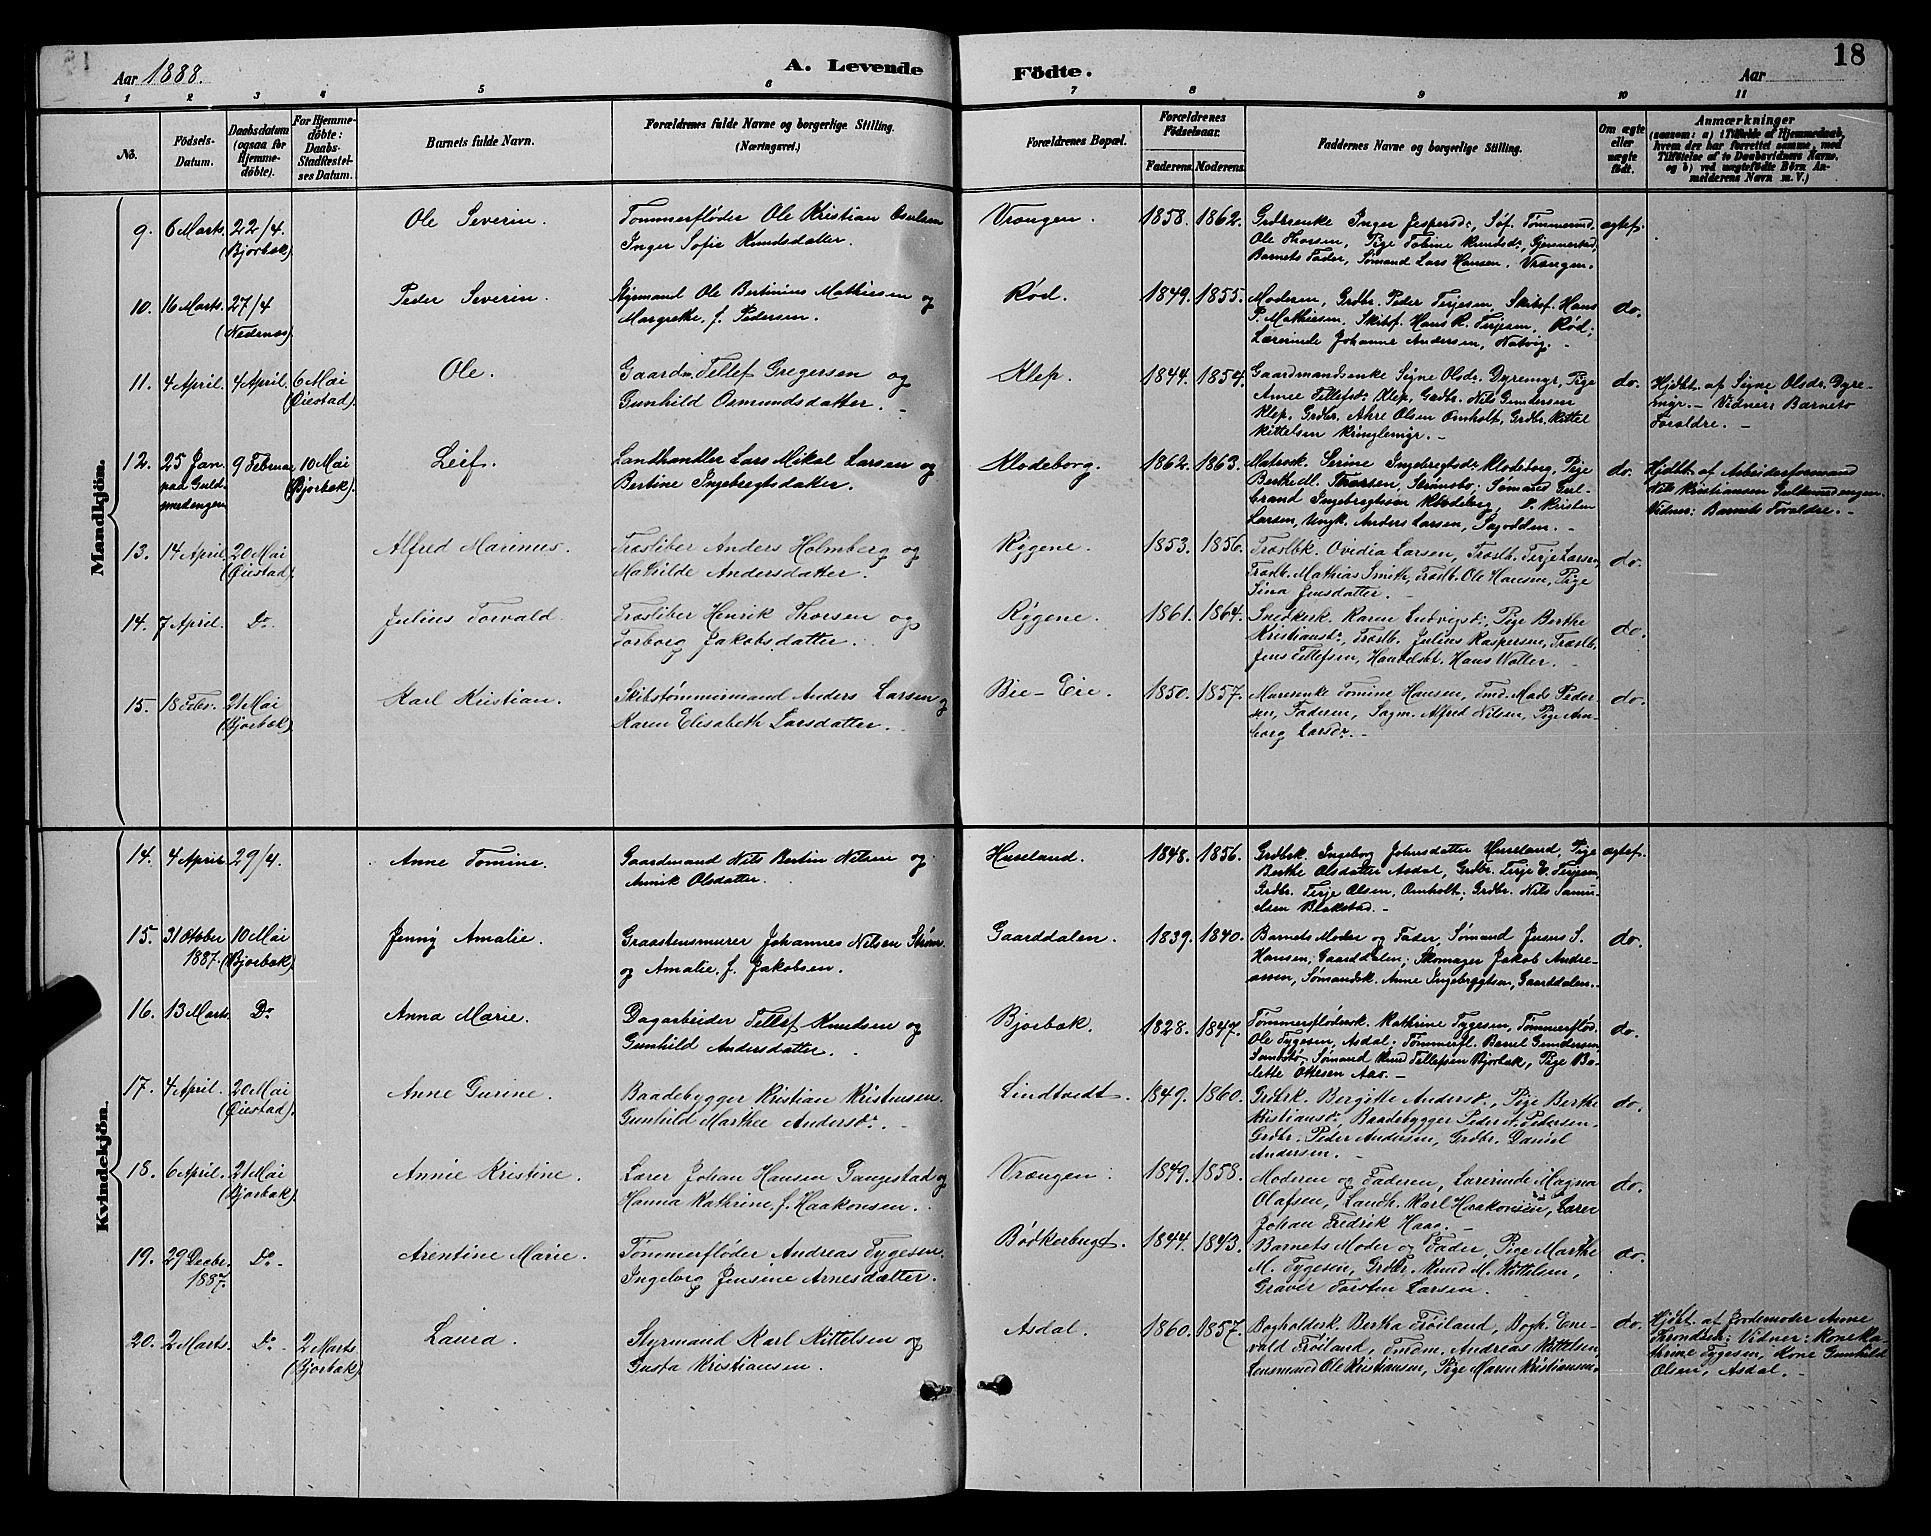 Aar 1888.
A. Levende Födte.
Aar
18
1 2 3 4 5 6 7 8 9 10 11
No.
Födsels-Datum.
Daabsdatum (ogsaa for Hjemmedöbte).
For Hjemmedöbte: Daabs-Stadfæstelses Datum.
Barnets fulde Navn.
Forældrenes fulde Navne og borgerlige Stilling.
(Næringsvei.)
Forældrenes Bopæl.
Forældrenes Födselsaar.
Faderens. Moderens.
Faddernes Navne og borgerlige Stilling.
Om ægte eller uægte födt.
Anmærkninger
(saasom: a) i Tilfælde af Hjemmedaab, hvem der har forrettet samme, med Tilföielse af to Daabsvidners Navne, og b) ved uægtefödte Börn Anmelderens Navn m. V.)
Mandkjön.
9. 6 Marts. 22/4. (Bjorbæk) Ole Severin. Tømmerfløder Ole Kristian Osulsen
Inger Sofie Knudsdatter.
Vrængen. 1858. 1862. Grdbrenke Inger Jespersd:, Søf. Tømmermd.
Ole Thorsen, Pige Tobine Knudsd:, Gjennestad,
Barnets Fader, Sømand Lars Hansen, Vrængen.
ægtef.
10. 16 Marts. 27/4 (Nedenæs) Peder Severin. Styrmand Ole Bertinius Mathiesen og
Margrethe, f. Pedersen.
Rød. 1849. 1855. Moderen, Grdbr. Peder Terjesen, Skibsf. Hans
P. Mathiesen, Skibsf. Hans R. Terjesen, Rød;
Lærerinde Johanne Andersen, Natvig.
do.
11. 4 April. 4 April. 6 Mai (Øiestad). Ole. Gaardm. Tellef Gregersen og
Gunhild Osmundsdatter.
Klep. 1844. 1854. Gaardmandsenke Signe Olsdr. Dyremyr, Pige
Anne Tellefsdr. Klep, Grdbr. Nils Gundersen
Klep, Grdbr. Ahre Olsen Omholt, Grdbr. Kittel
Kittelsen Kringlemyr.
do. Hjdbt. af Signe Olsdr. Dyre-
myr. – Vidner: Barnets
Forældre.
12. 25 Jan. paa Guldmedengen 9 Februar 10 Mai (Bjorbæk). Leif. Landhandler Lars Mikal Larsen og
Bertine Ingebregtsdatter.
Klodeborg. 1862. 1863. Matrosk. Serine Ingebregtsdr. Klodeborg, Pige
Larsen, Strømsbo; Sømand Gul-
brand Ingebregtsen Klodeborg, Kristen
Larsen, Ungk. Anders Larsen, Sagodden.
do. Hjdbt. af Arbeiderformand
Nils Kristiansen Guldsmedengen.
Vidner: Barnets Forældre.
13. 14 April. 20 Mai (Øiestad). Alfred Marinus. Træsliber Anders Holmberg og
Mathilde Andersdatter.
Rygene. 1853. 1856. Træslbk. Ovidia Larsen, Træslb. Terje Larsen,
Træslb. Mathias Smith, Træslb. Ole Hansen, Pige
Sina Jensdatter.
do.
14. 7 April. Do. Julius Torvald. Træsliber Henrik Thorsen og
Torborg Jakobsdatter.
Rygene. 1861. 1864. Snedkerk. Karen Ludvigsdr., Pige Berthe
Kristiansdr., Træslb. Julius Kaspersen, Træslb.
Jens Tellefsen, Hans Woller.
do.
15. 18 Febr. 21 Mai (Bjorbæk) Karl Kristian. Skibstømmermand Anders Larsen og
Karen Elisabeth Larsdatter.
Bie-Eie. 1850. 1857. Murerenke Tomine Hansen, Tmd. Mads Peder-
sen, Faderen, Sagm. Alfred Nilsen, Pige An-
borg Larsdr.
do.
Kvindekjön.
14. 4 April. 29/4. Anne Tomine. Gaardmand Nils Bertin Nilsen og
Annik Olsdatter.
Huseland. 1848. 1856. Grdbrk. Ingeborg Johnsdatter Huseland, Pige
Berthe Olsdatter Asdal, Grdbr. Terje E. Terjesen,
Grdbr. Terje Olsen, Omholt; Grdbr. Nils Samu-
elsen Blakstad.
ægtef.
15. 31 Otober 1887. 10 Mai (Bjorbæk). Jenny Amalie. Graastensmurer Johannes Nilsen Strøm
og Amalie, f. Jakobsen.
Gaarddalen. 1839. 1840. Barnets Moder og Fader, Sømand Jensus S.
Hansen, Gaarddalen; Skomager Jakob Andre-
assen, Sømandsk. Anne Ingebregtsen, Gaarddalen.
do.
16. 13 Marts. Do. Anna Marie. Dagarbeider Tellef Knudsen og
Gunhild Andersdatter.
Bjorbæk. 1828. 1847. Tømmerfløderk. Kathrine Tygesen, Tømmerflød.
Ole Tygesen, Asdal; Tømmerfl. Barel Gundersen
Sømand Knud Tellefsen Bjorbæk, Pige Bo-
lette Ottesen Aas.
do.
17. 4 April. 20 Mai (Øiestad). Anne Gurine. Baadebygger Kristian Kristensen.
Gunhild Marthee Andersdr.
Lindtvedt. 1849. 1860. Grdbrk. Bergitte Andersdr., Pige Berthe
Kristiansdr., Baadebygger Peder N. Pedersen,
Grdbr. Peder Andersen, Grdbr. Daniel
Andersen.
do.
18. 6 April. 21 Mai (Bjorbæk). Annie Kristine. Lærer Johan Hansen Gangestad og
Hanna Kathrine, f. Haakonsen.
Vrængen. 1849. 1858. Moderen og Faderen, Lærerinde Magna
Olafsen, Landh. Karl Haakonsen, Lærer
Johan Fredrik Haas.
do.
19. 29 Decbr. 1887. Do. Arentine Marie. Tømmerfløder Andreas Tygesen.
Ingeborg Jensine Arnesdatter.
Bødkerbugt. 1844. 1843. Barnets Moder og Fader, Pige Marthe
M. Tygesen, Grdbr. Knud M. Kittelsen,
Graver Torsten Larsen.
do.
20. 2 Marts. Do. 2 Marts (Bjorbæk). Laura. Styrmand Karl Kittelsen og
Gusta Kristiansen.
Asdal. 1860. 1857. Bogholderk. Bertha Frøiland, Bogh. Ene-
vald Frøiland, Tmdm. Andreas Kittelsen,
Lensmand Ole Kristiansen, Pige Maren Kristiansen.
do. Hjdbt. af Jordemoder Anne
Throndsen; Vidner: Kone Ka-
thrine Tygesen, Kone Gunhild
Olsen, Asdal.